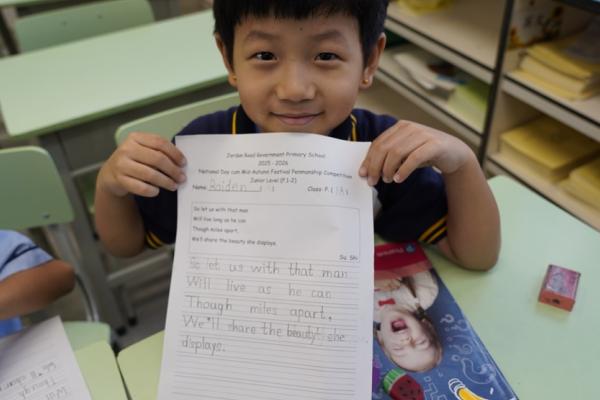 Jordan Road Government Primary School
2025 - 2026
National Day cum Mid-Autumn Festival Penmanship Competition
Junior Level (P.1-2)
Name: Raiden Class: P.1
So let us with that man
Will live long as he can
Though miles apart,
We'll share the beauty she displays.
Su Shi
So let us with that man
Will live as he can
Though miles apart,
We'll share the beauty she
displays.